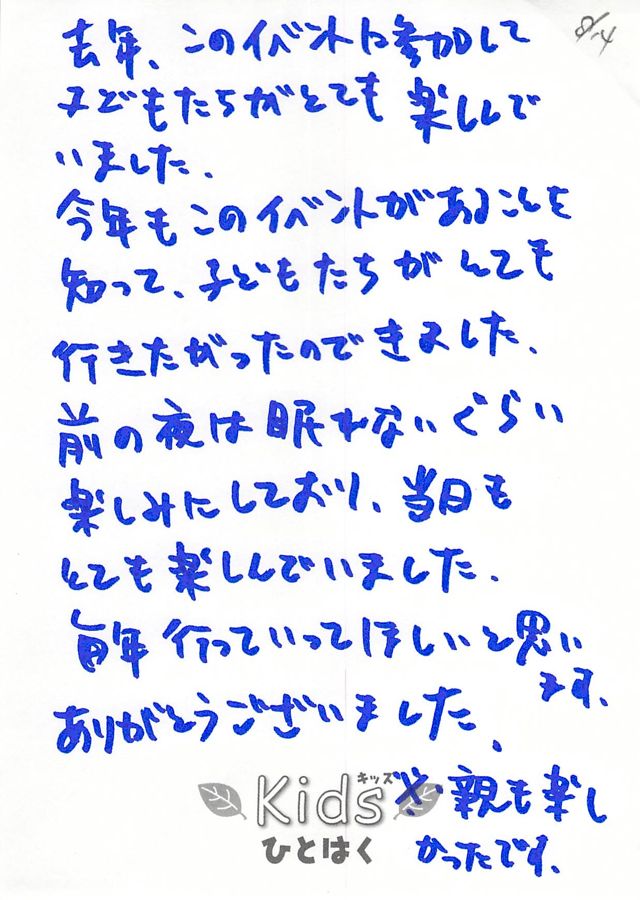 8/4
去年、このイベントに参加して
子どもたちがとても楽しんで
いました。
今年もこのイベントがあることを
知って、子どもたちがとても
行きたがったのできました。
前の夜は眠れないぐらい
楽しみにしており、当日も
とても楽しんでいました。
毎年行っていってほしいと思い
ます。
ありがとうございました。
キッズ
Kids
ひとはく
※親も楽し
かったです。